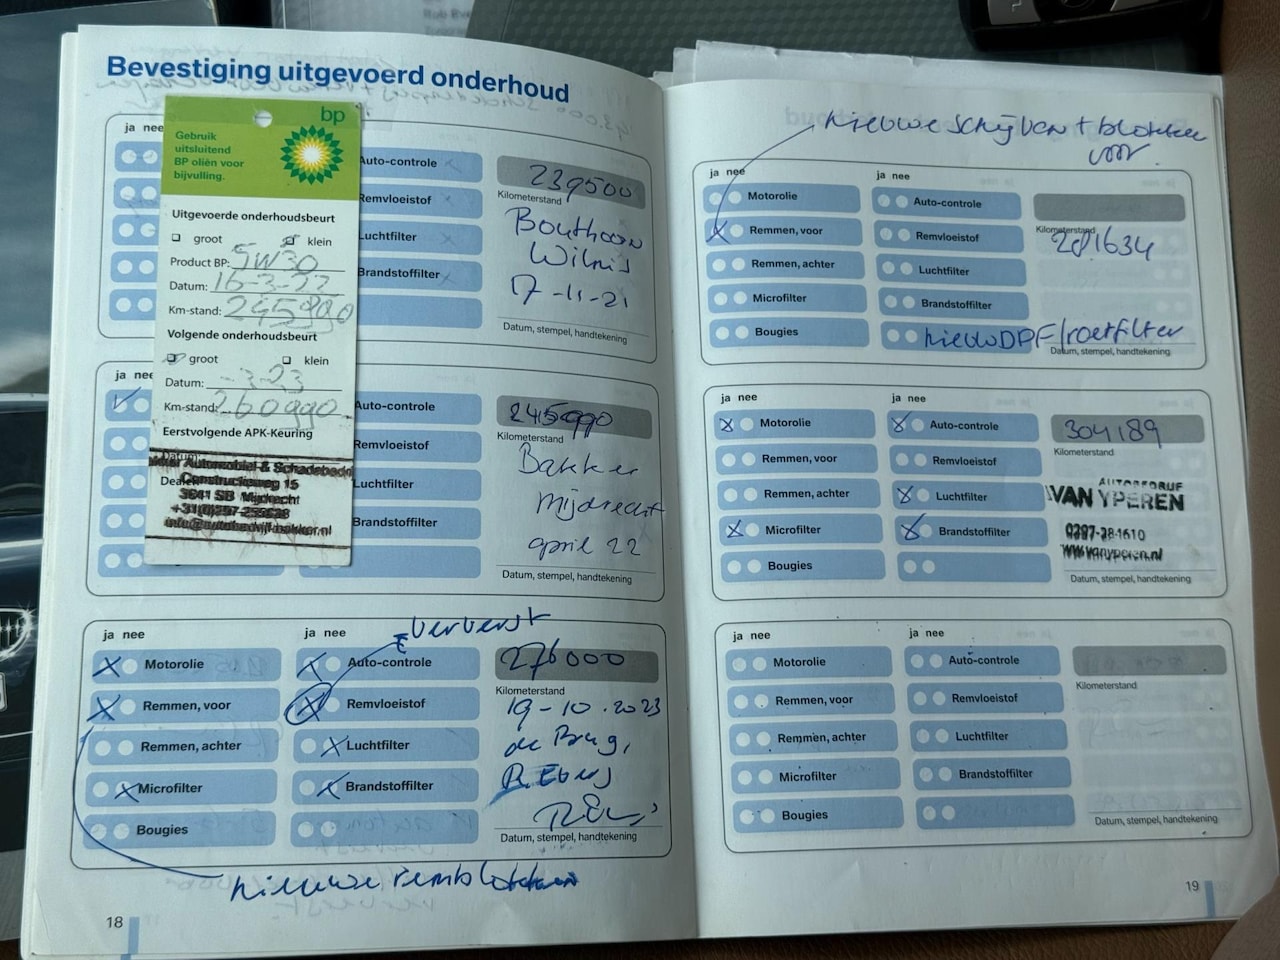 Bevestiging uitgevoerd onderhoud
bp
Gebruik
uitsluitend
BP oliën voor
bijvulling.
Uitgevoerde onderhoudsbeurt
groot klein
Product BP: 5W30
Datum: 16-3-22
Km-stand: 245990
Volgende onderhoudsbeurt
groot klein
Datum: -3-23
Km-stand: 260990
Eerstvolgende APK-Keuring
Datum:
Dealer
Automobiel & Schadebedr
Constructieweg 15
3641 SB Mijdrecht
info@autobedrijf-bakker.nl
ja nee
Auto-controle
Remvloeistof
Luchtfilter
Brandstoffilter
239500
Kilometerstand
Bouthoorn
Wilnis
17-11-21
Datum, stempel, handtekening
ja nee
Auto-controle
Remvloeistof
Luchtfilter
Brandstoffilter
245990
Kilometerstand
Bakker
Mijdrecht
april 22
Datum, stempel, handtekening
ververst
ja nee ja nee
Motorolie Auto-controle
Remmen, voor Remvloeistof
Remmen, achter Luchtfilter
Microfilter Brandstoffilter
Bougies
276000
Kilometerstand
19-10-2023
de Brug,
Datum, stempel, handtekening
nieuwe remblokken
18
nieuwe schijven + blokken
voor
ja nee ja nee
Motorolie Auto-controle
Remmen, voor Remvloeistof
Remmen, achter Luchtfilter
Microfilter Brandstoffilter
Bougies nieuw DPF/roetfilter
Kilometerstand
281634
Datum, stempel, handtekening
ja nee ja nee
Motorolie Auto-controle
Remmen, voor Remvloeistof
Remmen, achter Luchtfilter
Microfilter Brandstoffilter
Bougies
304189
Kilometerstand
AUTOBEDRIJF
VAN YPEREN
0297-284610
www.vanyperen.nl
Datum, stempel, handtekening
ja nee ja nee
Motorolie Auto-controle
Remmen, voor Remvloeistof
Remmen, achter Luchtfilter
Microfilter Brandstoffilter
Bougies
Kilometerstand
Datum, stempel, handtekening
19